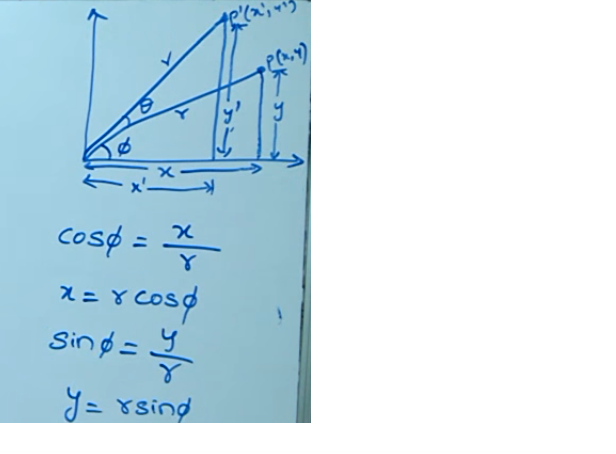 P'(x', y')
P(x, y)
r
θ
r
y'
y
φ
x
x'
cosφ = x/r
x = r cosφ
sinφ = y/r
y = r sinφ